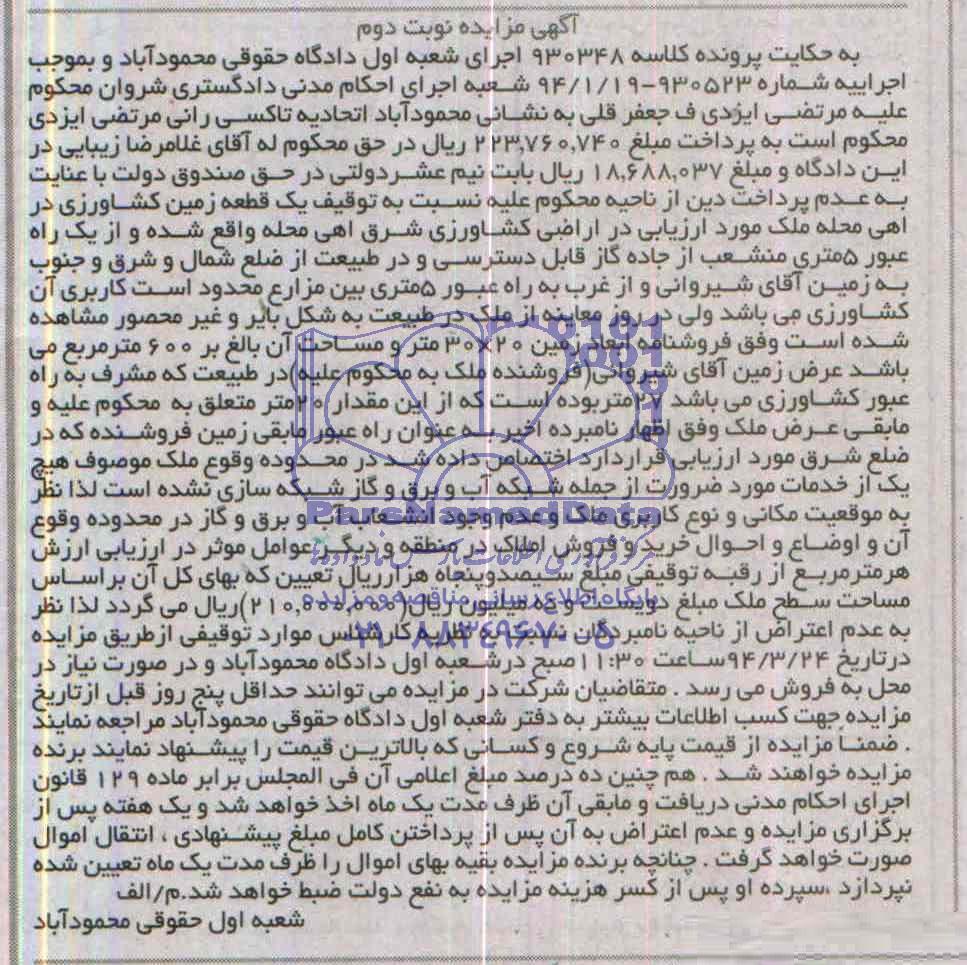 آگهی مزایده نوبت دوم
به حکایت پرونده کلاسه ۹۳۰۳۴۸ اجرای شعبه اول دادگاه حقوقی محمودآباد و بموجب
اجراییه شماره ۹۳۰۵۲۳-۹۴/۱/۱۹ شعبه اجرای احکام مدنی دادگستری شروان محکوم
علیه مرتضی ایزدی ف جعفر قلی به نشانی محمودآباد اتحادیه تاکسی رانی مرتضی ایزدی
محکوم است به پرداخت مبلغ ۲۲۳,۷۶۰,۷۴۰ ریال در حق محکوم له آقای غلامرضا زیبایی در
این دادگاه و مبلغ ۱۸,۶۸۸,۰۳۷ ریال بابت نیم عشردولتی در حق صندوق دولت با عنایت
به عدم پرداخت دین از ناحیه محکوم علیه نسبت به توقیف یک قطعه زمین کشاورزی در
اهی محله ملک مورد ارزیابی در اراضی کشاورزی شرق اهی محله واقع شده و از یک راه
عبور ۵متری منشعب از جاده گاز قابل دسترسی و در طبیعت از ضلع شمال و شرق و جنوب
به زمین آقای شیروانی و از غرب به راه عبور ۵متری بین مزارع محدود است کاربری آن
کشاورزی می باشد ولی در روز معاینه از ملک در طبیعت به شکل بایر و غیر محصور مشاهده
شده است وفق فروشنامه ابعاد زمین ۲۰×۳۰ متر و مساحت آن بالغ بر ۶۰۰ مترمربع می
باشد عرض زمین آقای شیروانی(فروشنده ملک به محکوم علیه)در طبیعت که مشرف به راه
عبور کشاورزی می باشد ۲۷متربوده است که از این مقدار ۲۰متر متعلق به محکوم علیه و
مابقی عرض ملک وفق اظهار نامبرده اخیر به عنوان راه عبور مابقی زمین فروشنده که در
ضلع شرق مورد ارزیابی قراردارد اختصاص داده شد در محدوده وقوع ملک موصوف هیچ
یک از خدمات مورد ضرورت از جمله شبکه آب و برق و گاز شبکه سازی نشده است لذا نظر
به موقعیت مکانی و نوع کاربری ملک و عدم وجود انشعاب آب و برق و گاز در محدوده وقوع
آن و اوضاع و احوال خرید و فروش املاک در منطقه و دیگر عوامل موثر در ارزیابی ارزش
هرمترمربع از رقبه توقیفی مبلغ سیصدوپنجاه هزارریال تعیین که بهای کل آن براساس
مساحت سطح ملک مبلغ دویست و ده میلیون ریال(۲۱۰,۰۰۰,۰۰۰)ریال می گردد لذا نظر
به عدم اعتراض از ناحیه نامبردگان نسبت به نظریه کارشناس موارد توقیفی ازطریق مزایده
درتاریخ ۹۴/۳/۲۴ساعت ۱۱:۳۰صبح درشعبه اول دادگاه محمودآباد و در صورت نیاز در
محل به فروش می رسد . متقاضیان شرکت در مزایده می توانند حداقل پنج روز قبل ازتاریخ
مزایده جهت کسب اطلاعات بیشتر به دفتر شعبه اول دادگاه حقوقی محمودآباد مراجعه نمایند
. ضمنا مزایده از قیمت پایه شروع و کسانی که بالاترین قیمت را پیشنهاد نمایند برنده
مزایده خواهند شد . هم چنین ده درصد مبلغ اعلامی آن فی المجلس برابر ماده ۱۲۹ قانون
اجرای احکام مدنی دریافت و مابقی آن ظرف مدت یک ماه اخذ خواهد شد و یک هفته پس از
برگزاری مزایده و عدم اعتراض به آن پس از پرداختن کامل مبلغ پیشنهادی ، انتقال اموال
صورت خواهد گرفت . چنانچه برنده مزایده بقیه بهای اموال را ظرف مدت یک ماه تعیین شده
نپردازد ،سپرده او پس از کسر هزینه مزایده به نفع دولت ضبط خواهد شد.م/الف
شعبه اول حقوقی محمودآباد
ParsNamadData
پایگاه اطلاع رسانی مناقصه و مزایده